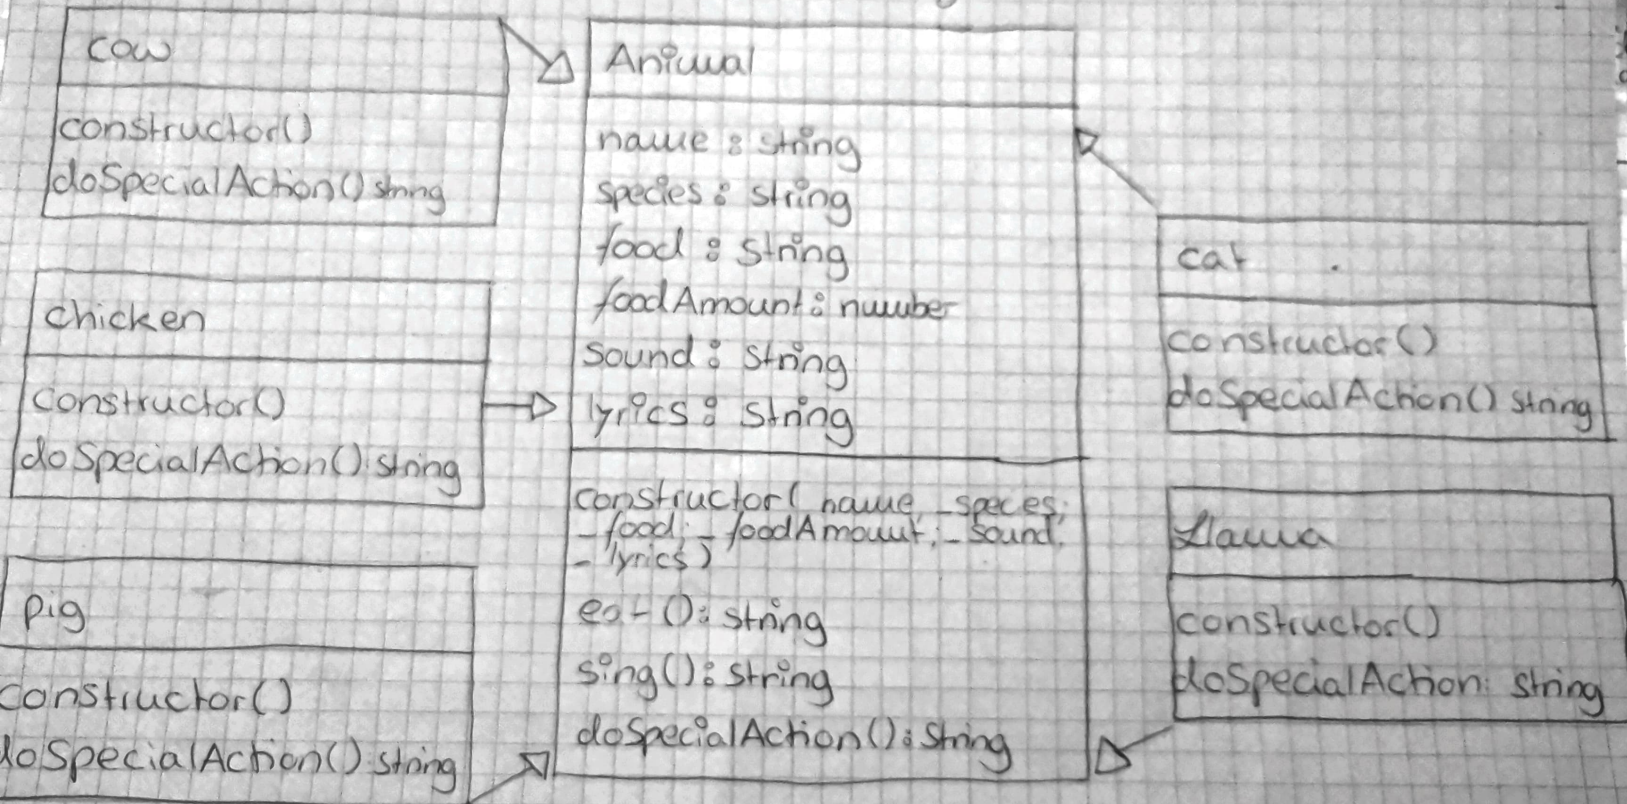 cow
constructor()
doSpecialAction() string
chicken
constructor()
doSpecialAction(): string
pig
constructor()
doSpecialAction(): string
Animal
name : string
species : string
food : string
foodAmount : number
sound : string
lyrics : string
constructor(_name, _speces;
_food; _foodAmount; _sound.
_lyrics)
eat(): string
sing(): string
doSpecialAction(): string
cat
constructor()
doSpecialAction() string
Llama
constructor()
doSpecialAction: string